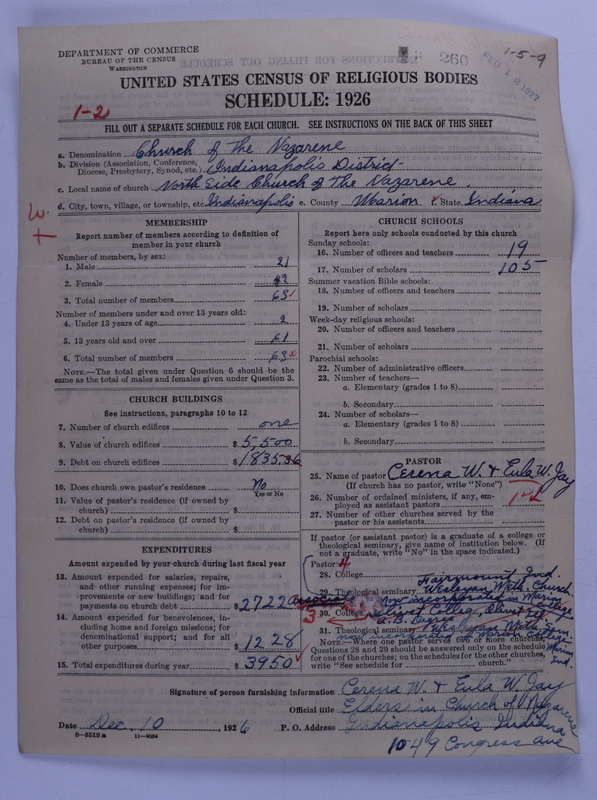 DEPARTMENT OF COMMERCE
BUREAU OF THE CENSUS
WASHINGTON
260
1-5-9
FEB 1927
UNITED STATES CENSUS OF RELIGIOUS BODIES
SCHEDULE: 1926
1-2
FILL OUT A SEPARATE SCHEDULE FOR EACH CHURCH. SEE INSTRUCTIONS ON THE BACK OF THIS SHEET
a. Denomination Church of The Nazarene
b. Division (Association, Conference, Diocese, Presbytery, Synod, etc.) Indianapolis District
c. Local name of church North Side Church of The Nazarene.
d. City, town, village, or township, etc. Indianapolis e. County Marion State Indiana
MEMBERSHIP
Report number of members according to definition of
member in your church
Number of members, by sex:
1. Male 21
2. Female 42
3. Total number of members 63
Number of members under and over 13 years old:
4. Under 13 years of age 2
5. 13 years old and over 61
6. Total number of members 63
NOTE.—The total given under Question 6 should be the
same as the total of males and females given under Question 3.
CHURCH BUILDINGS
See instructions, paragraphs 10 to 12
7. Number of church edifices one
8. Value of church edifices $ 5,500
9. Debt on church edifices $ 1835.36
10. Does church own pastor's residence No
Yes or No
11. Value of pastor's residence (if owned by
church) $
12. Debt on pastor's residence (if owned by
church) $
EXPENDITURES
Amount expended by your church during last fiscal year
13. Amount expended for salaries, repairs,
and other running expenses; for im-
provements or new buildings; and for
payments on church debt $ 2722
14. Amount expended for benevolences, in-
cluding home and foreign missions; for
denominational support; and for all
other purposes $ 1228
15. Total expenditures during year $ 3950
CHURCH SCHOOLS
Report here only schools conducted by this church
Sunday schools:
16. Number of officers and teachers 19
17. Number of scholars 105
Summer vacation Bible schools:
18. Number of officers and teachers
19. Number of scholars
Week-day religious schools:
20. Number of officers and teachers
21. Number of scholars
Parochial schools:
22. Number of administrative officers
23. Number of teachers—
a. Elementary (grades 1 to 8)
b. Secondary
24. Number of scholars—
a. Elementary (grades 1 to 8)
b. Secondary
PASTOR
25. Name of pastor Cerena W. & Eula W. Jay
(If church has no pastor, write "None")
26. Number of ordained ministers, if any, em-
ployed as assistant pastors
27. Number of other churches served by the
pastor or his assistants
If pastor (or assistant pastor) is a graduate of a college or
theological seminary, give name of institution below. (If
not a graduate, write "No" in the space indicated.)
Pastor: 4
28. College Fairmount Ind.
29. Theological seminary Wesleyan Meth. Church
now incorporated in Marion College
3
30. College Olivet College, Olivet
A.B. Degree
31. Theological seminary Wesleyan Meth. Sem.
Marion College Marion Ind.
NOTE.—Where one pastor served two or more churches,
Questions 28 and 29 should be answered only on the schedule
for one of the churches; on the schedules for the other churches,
write "See schedule for church."
Signature of person furnishing information Cerena W & Eula W. Jay
Official title Elders in Church of Nazarene
Date Dec. 10, 1926 P. O. Address Indianapolis Indiana
8—5518a 11—9084
1049 Congress ave